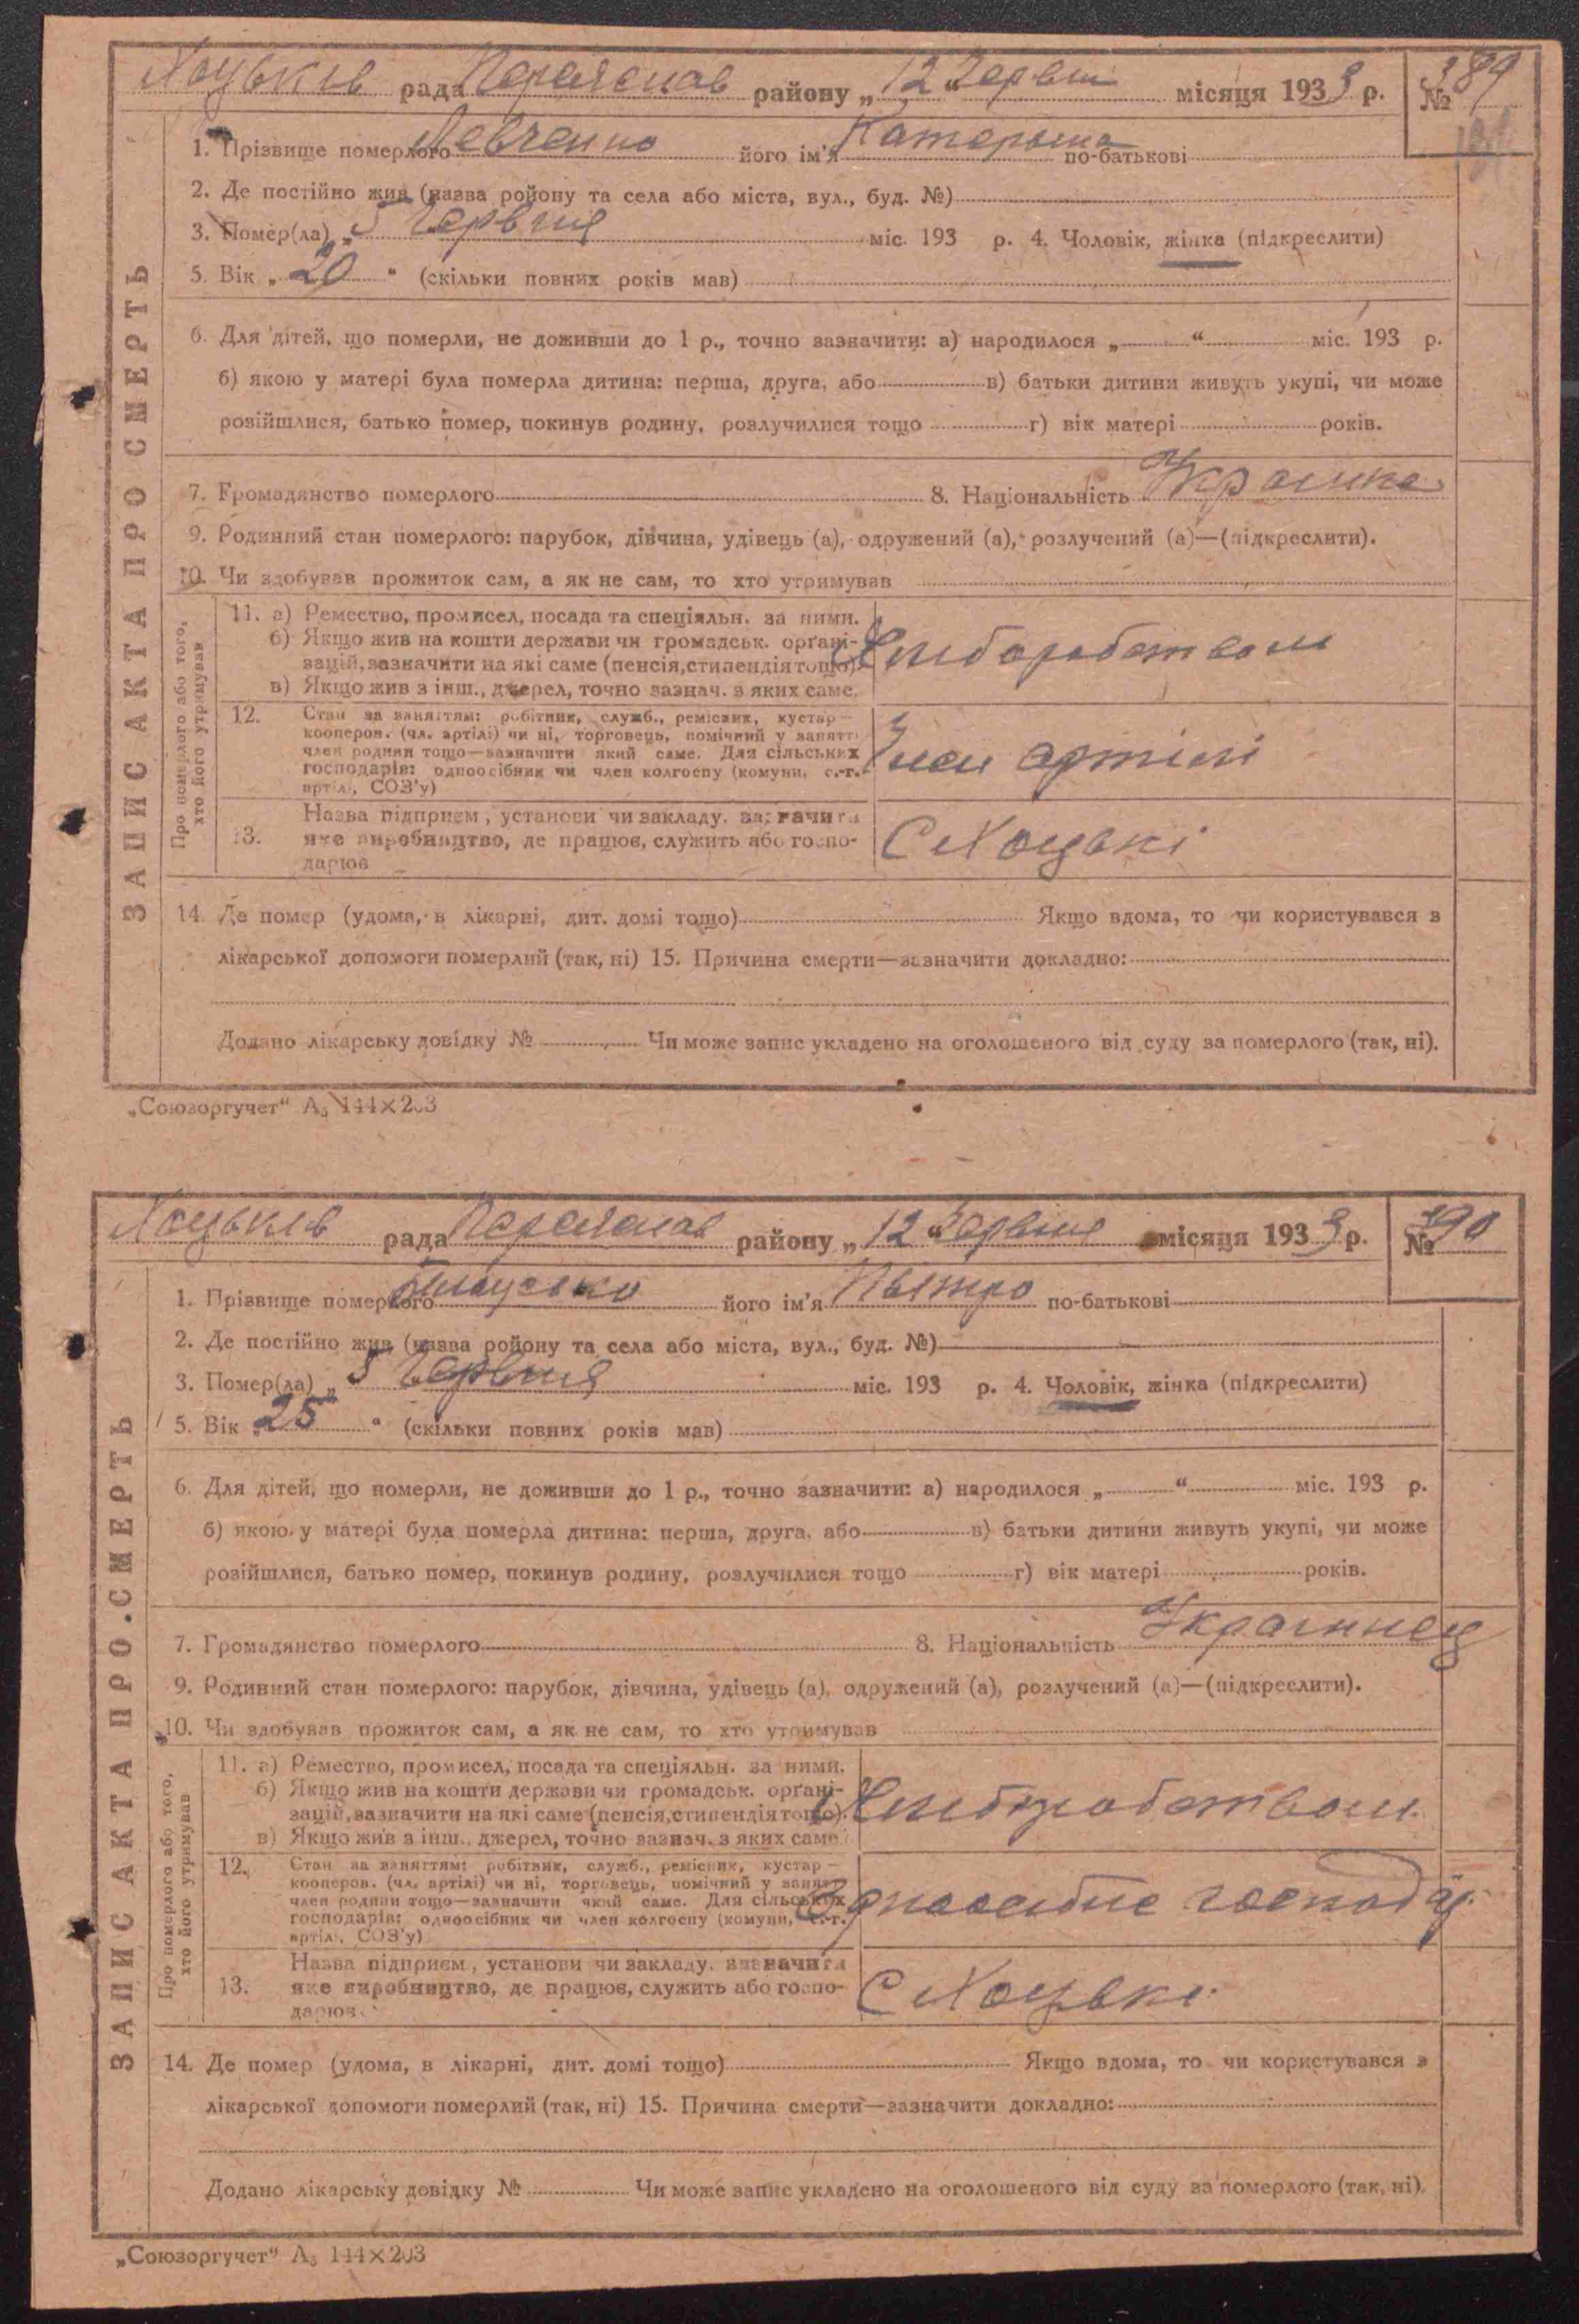 Хоцьків рада Переяслав району „12“ Червня місяця 1933 р. № 389
1. Прізвище померлого Левченко його ім'я Катерына по-батькові
2. Де постійно жив (назва ройону та села або міста, вул., буд. №)
3. Помер(ла) „5 Червня міс. 193 р. 4. Чоловік, жінка (підкреслити)
5. Вік „20“ (скільки повних років мав)
6. Для дітей, що померли, не доживши до 1 р., точно зазначити: а) народилося „ “ міс. 193 р.
б) якою у матері була померла дитина: перша, друга, або в) батьки дитини живуть укупі, чи може
розійшлися, батько помер, покинув родину, розлучилися тощо г) вік матері років.
7. Громадянство померлого 8. Національність Украинка
9. Родинний стан померлого: парубок, дівчина, удівець (а), одружений (а), розлучений (а)—(підкреслити).
10. Чи здобував прожиток сам, а як не сам, то хто утримував
ЗАПИС АКТА ПРО СМЕРТЬ
Про померлого або того,
хто його утримував
11. а) Ремество, промисел, посада та спеціяльн. за ними.
б) Якщо жив на кошти держави чи громадськ. орґані-
зацій, зазначити на які саме (пенсія, стипендія тощо).
в) Якщо жив з інш., джерел, точно зазнач. з яких саме.
Хлиборобством
12. Стан за заняттям: робітник, служб., ремісник, кустар—
кооперов. (чл. артілі) чи ні, торговець, помічний у занятті
член родини тощо—зазначити який саме. Для сільських
господарів: одноосібник чи член колгоспу (комуни, с.-г.
артілі, СОЗ'у)
Член артілі
Назва підприєм., установи чи закладу, зазначити
13. яке виробництво, де працює, служить або госпо-
дарює
С Хоцькі
14. Де помер (удома, в лікарні, дит. домі тощо) Якщо вдома, то чи користувався з
лікарської допомоги померлий (так, ні) 15. Причина смерти—зазначити докладно:
Додано лікарську довідку № Чи може запис укладено на оголошеного від суду за померлого (так, ні).
„Союзоргучет“ А₅ 144×203
Хоцьків рада Переяслав району „12“ Червня місяця 1933 р. № 390
1. Прізвище померлого його ім'я Пытро по-батькові
2. Де постійно жив (назва ройону та села або міста, вул., буд. №)
3. Помер(ла) „5 Червня міс. 193 р. 4. Чоловік, жінка (підкреслити)
5. Вік „25“ (скільки повних років мав)
6. Для дітей, що померли, не доживши до 1 р., точно зазначити: а) народилося „ “ міс. 193 р.
б) якою у матері була померла дитина: перша, друга, або в) батьки дитини живуть укупі, чи може
розійшлися, батько помер, покинув родину, розлучилися тощо г) вік матері років.
7. Громадянство померлого 8. Національність Украинец
9. Родинний стан померлого: парубок, дівчина, удівець (а), одружений (а), розлучений (а)—(підкреслити).
10. Чи здобував прожиток сам, а як не сам, то хто утримував
ЗАПИС АКТА ПРО СМЕРТЬ
Про померлого або того,
хто його утримував
11. а) Ремество, промисел, посада та спеціяльн. за ними.
б) Якщо жив на кошти держави чи громадськ. орґані-
зацій, зазначити на які саме (пенсія, стипендія тощо).
в) Якщо жив з інш., джерел, точно зазнач. з яких саме.
Хлиборобством
12. Стан за заняттям: робітник, служб., ремісник, кустар—
кооперов. (чл. артілі) чи ні, торговець, помічний у занятті
член родини тощо—зазначити який саме. Для сільських
господарів: одноосібник чи член колгоспу (комуни, с.-г.
артілі, СОЗ'у)
Назва підприєм., установи чи закладу, зазначити
13. яке виробництво, де працює, служить або госпо-
дарює
С Хоцькі
14. Де помер (удома, в лікарні, дит. домі тощо) Якщо вдома, то чи користувався з
лікарської допомоги померлий (так, ні) 15. Причина смерти—зазначити докладно:
Додано лікарську довідку № Чи може запис укладено на оголошеного від суду за померлого (так, ні).
„Союзоргучет“ А₅ 144×203